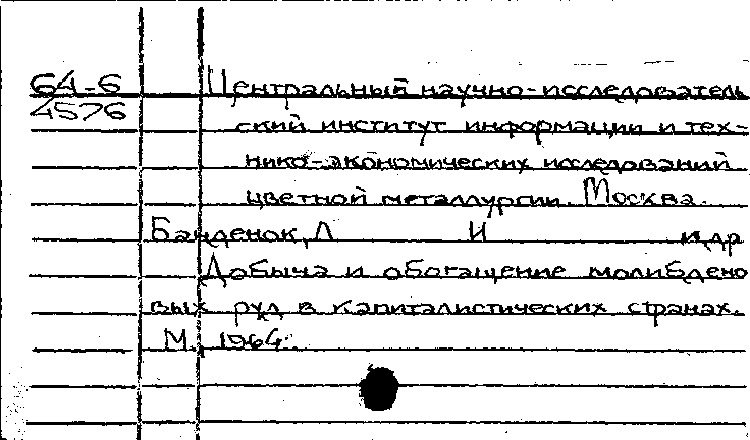 64-6 Центральный научно-исследователь
4576 ский институт информации и тех-
нико-экономических исследований
цветной металлургии. Москва.
Банденок, Л И и др
Добыча и обогащение молибдено
вых руд в капиталистических странах.
М., 1964.